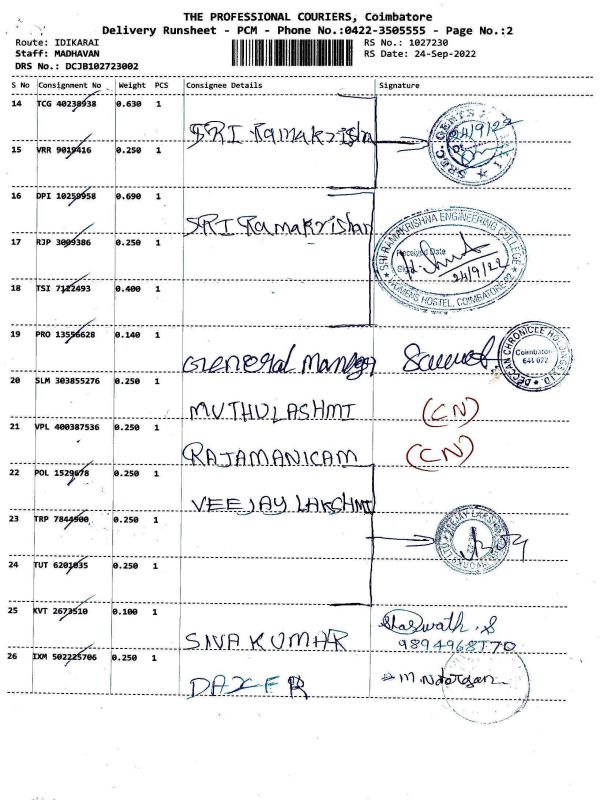 THE PROFESSIONAL COURIERS, Coimbatore
Delivery Runsheet - PCM - Phone No.:0422-3505555 - Page No.:2
Route: IDIKARAI RS No.: 1027230
Staff: MADHAVAN RS Date: 24-Sep-2022
DRS No.: DCJB102723002
S No Consignment No Weight PCS Consignee Details Signature
14 TCG 40238938 0.630 1
SRI Ramakrisha 24/9/22
15 VRR 9019416 0.250 1
16 DPI 10259958 0.690 1
SRI Ramakrishan
SRI RAMAKRISHNA ENGINEERING COLLEGE
17 RJP 3009386 0.250 1
Received Date
Sign
24/9/22
WOMENS HOSTEL, COIMBATORE-22
18 TSI 7122493 0.400 1
19 PRO 13556628 0.140 1
General Manager
DECCAN CHRONICLE HOLDINGS LTD
Coimbatore
641 022
20 SLM 303855276 0.250 1
MUTHULASHMI (CN)
21 VPL 400387536 0.250 1
RAJAMANICAM (CN)
22 POL 1529678 0.250 1
VEEJAY LAKSHMI
23 TRP 7844900 0.250 1
24 TUT 6201035 0.250 1
25 KVT 2673510 0.100 1
SIVA KUMAR
26 IXM 502225706 0.250 1